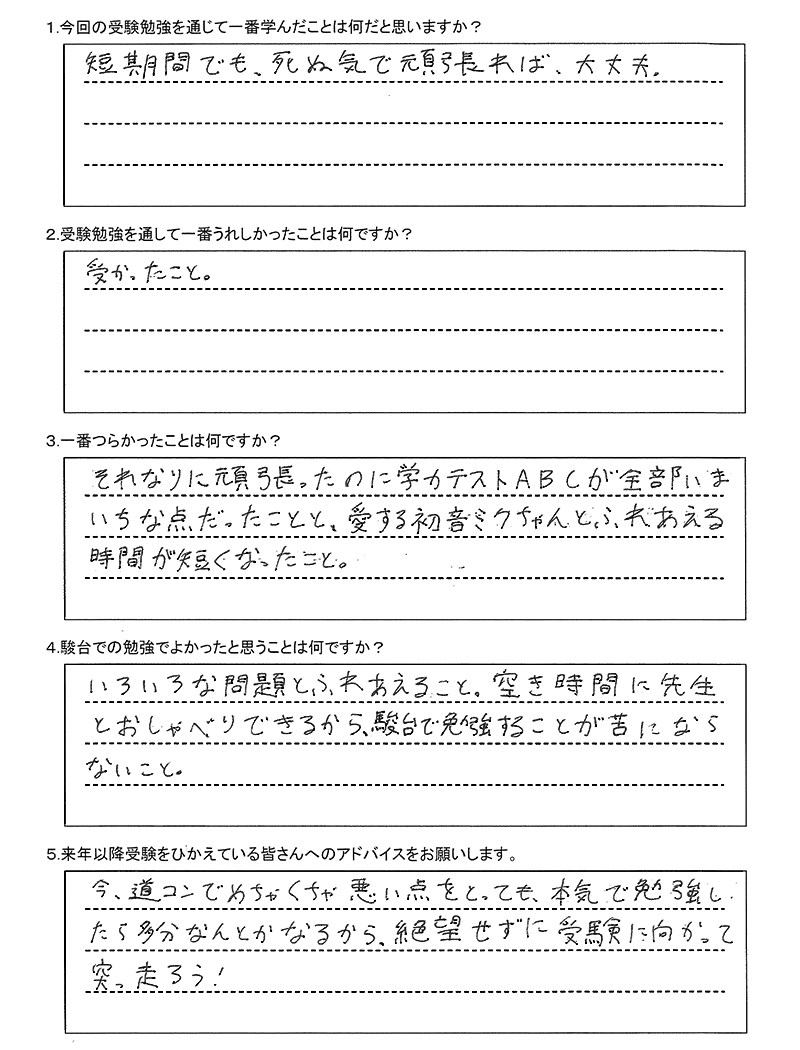 1.今回の受験勉強を通じて一番学んだことは何だと思いますか？
短期間でも、死ぬ気で頑張れば、大丈夫。
2.受験勉強を通して一番うれしかったことは何ですか？
受かったこと。
3.一番つらかったことは何ですか？
それなりに頑張ったのに学力テストABCが全部いま
いちな点だったことと、愛する初音ミクちゃんとふれあえる
時間が短くなったこと。
4.駿台での勉強でよかったと思うことは何ですか？
いろいろな問題とふれあえること。空き時間に先生
とおしゃべりできるから、駿台で勉強することが苦になら
ないこと。
5.来年以降受験をひかえている皆さんへのアドバイスをお願いします。
今、道コンでめちゃくちゃ悪い点をとっても、本気で勉強し
たら多分なんとかなるから、絶望せずに受験に向かって
突っ走ろう！